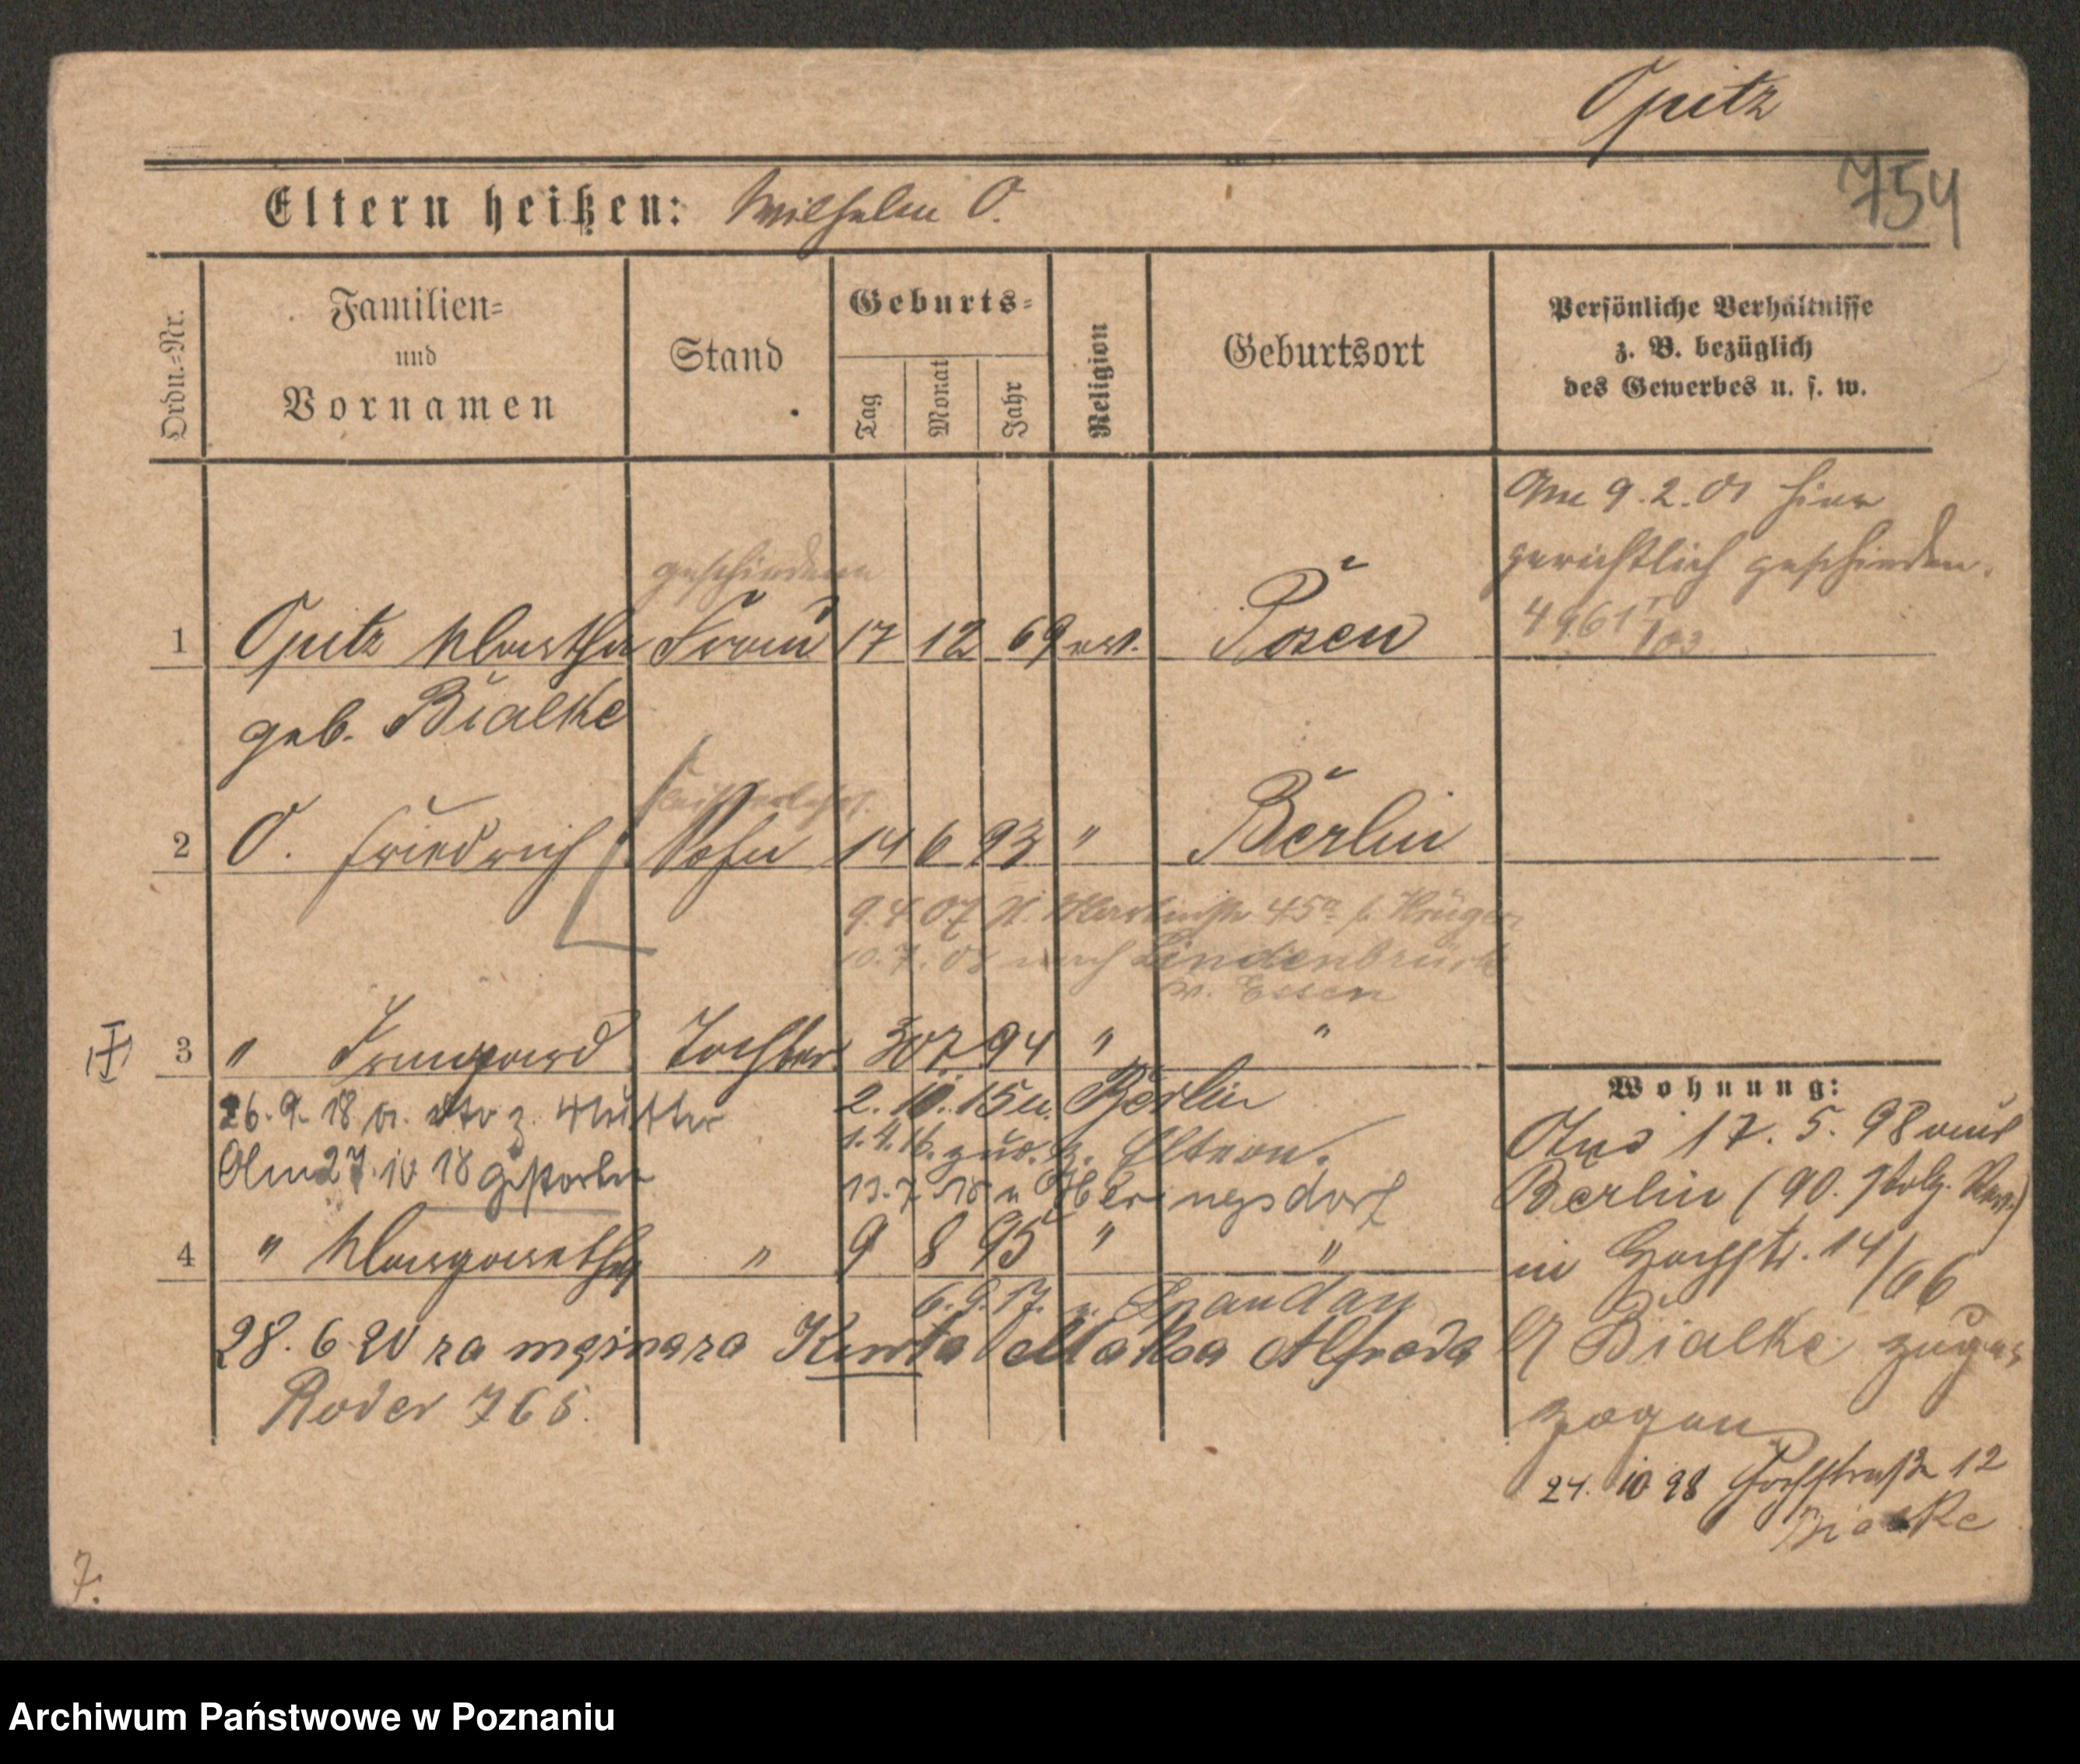 Opitz
754
Eltern heißen: Wilhelm O.
Ordn.=Nr.
Familien=
und
Vornamen
Stand
Geburts=
Tag
Monat
Jahr
Religion
Geburtsort
Persönliche Verhältnisse
z. B. bezüglich
des Gewerbes u. s. w.
Am 9.2.01 hier
gerichtlich geschieden.
geschiedene
1 Opitz Martha Frau 17 12 69 ev. Posen
geb. Bialke
2 O. Friedrich Sohn 14 6 93 " Berlin
9.4.07 Martinstr. 45a b. Krüger
10.7.08 nach Lindenbrück
Essen
3 " Irmgard Tochter 30 7 94 " "
26.9.18 z. Mutter
2. 10. 15 n. Berlin
1.4.16 zur. z. Eltern.
Am 27. 10 18 gestorben
13.7.18 n Heringsdorf
4 " Margarethe " 9 8 95 " "
6.9.17. n. Spandau
28.6 20 za mężina za Kurta Maksa Alfreda
Roder 765.
Wohnung:
Aus 17. 5. 98 aus
Berlin (90.
in Hochstr. 14/66
Bialke zuge-
zogen
24. 10 98 Hochstraße 12
Bialke
7.
Archiwum Państwowe w Poznaniu